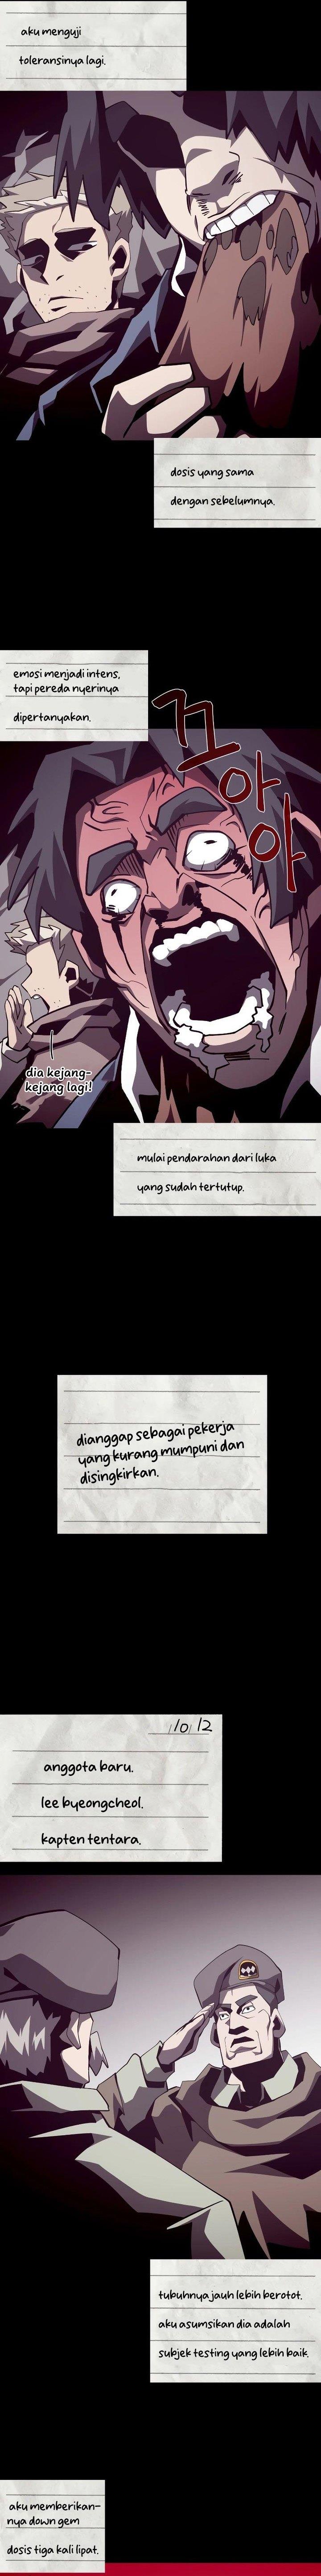 aku menguji
toleransinya lagi.
dosis yang sama
dengan sebelumnya.
emosi menjadi intens,
tapi pereda nyerinya
dipertanyakan.
끄아
아
dia kejang-
kejang lagi!
mulai pendarahan dari luka
yang sudah tertutup.
dianggap sebagai pekerja
yang kurang mumpuni dan
disingkirkan.
/10/ 12
anggota baru.
lee byeongcheol.
kapten tentara.
tubuhnya jauh lebih berotot.
aku asumsikan dia adalah
subjek testing yang lebih baik.
aku memberikan-
nya down gem
dosis tiga kali lipat.